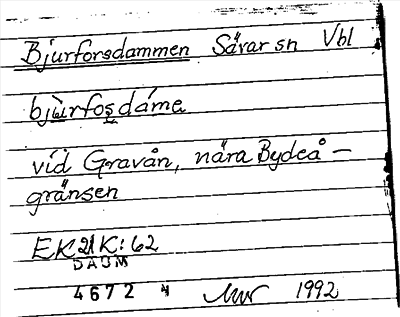 Bjurforsdammen Sävar sn Vbl
bjùrfoşdáme
vid Gravån, nära Bydeå-
gränsen
EK21K:62
DAUM
4672
1992